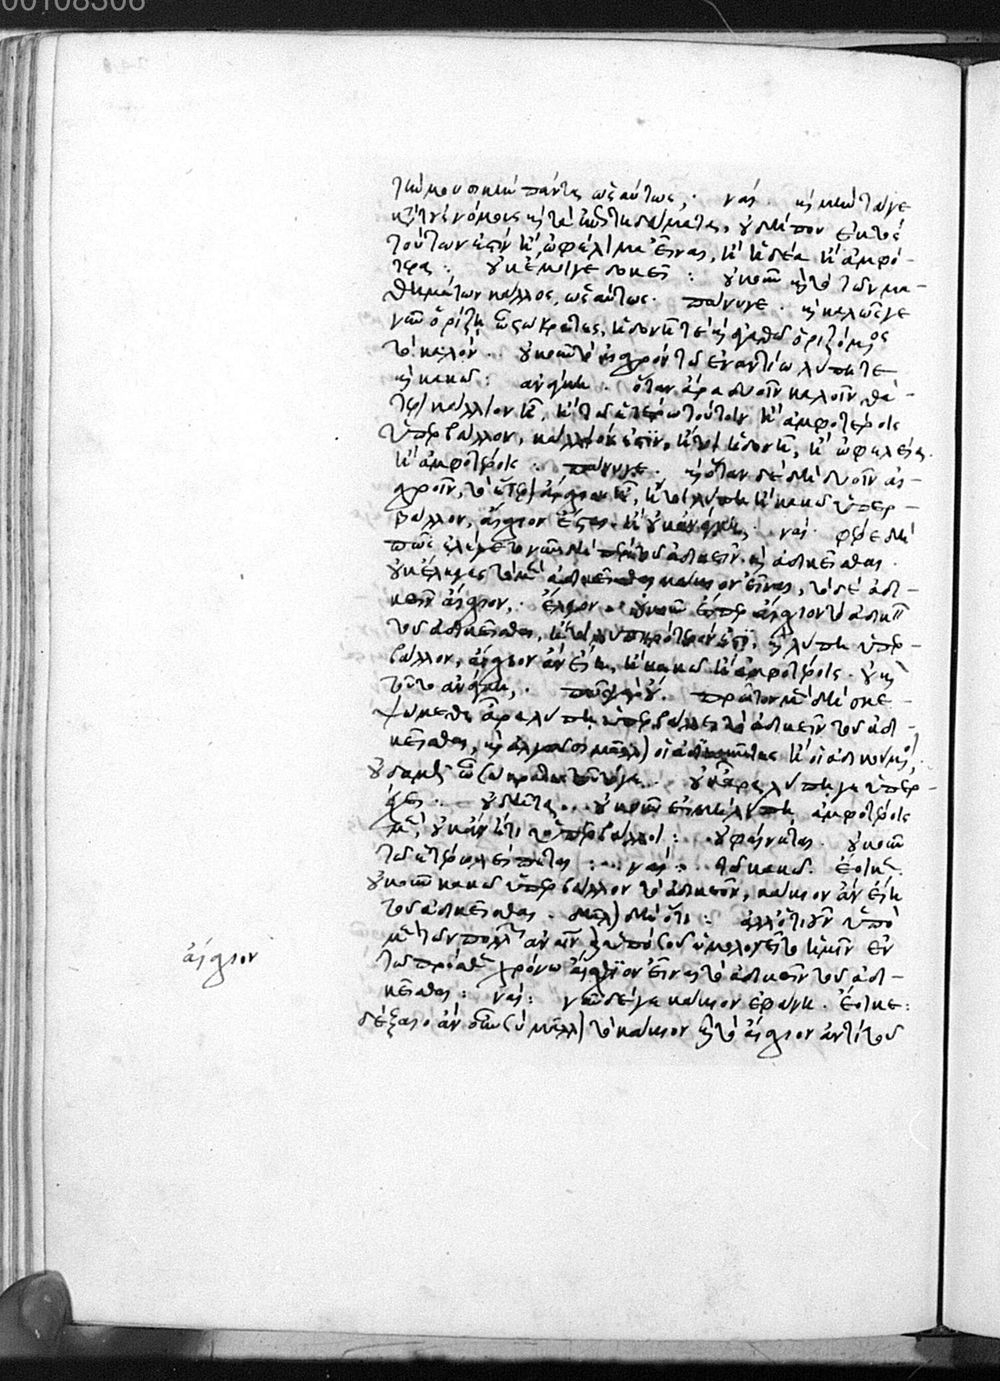 τὴν μουσικὴν πάντα ὡσαύτως; ναί. καὶ μὴν τά γε
κατὰ τοὺς νόμους καὶ τὰ ἐπιτηδεύματα, οὐ δήπου ἐκτὸς
τούτων ἐστὶν ἢ ὠφέλιμα εἶναι, ἢ ἡδέα ἢ ἀμφό-
τερα: οὐκ ἔμοιγε δοκεῖ: οὐκοῦν καὶ τὸ τῶν μα-
θημάτων κάλλος, ὡσαύτως. πάνυγε. καὶ καλῶς γε
νῦν ὁρίζῃ ὦ σώκρατες, ἡδονῇ τε καὶ ἀγαθῷ ὁριζόμενος
τὸ καλόν. οὐκοῦν τὸ αἰσχρὸν τῷ ἐναντίῳ λύπῃ τε
καὶ κακῷ: ἀνάγκη. ὅταν ἄρα δυοῖν καλοῖν θά-
τερον κάλλιον ᾖ, ἢ τῷ ἑτέρῳ τούτοιν ἢ ἀμφοτέροις
ὑπερβάλλον, κάλλιόν ἐστιν, ἤτοι ἡδονῇ, ἢ ὠφελείᾳ.
ἢ ἀμφοτέροις. πάνυγε. καὶ ὅταν δὲ δὴ δυοῖν αἰ-
σχροῖν, τὸ ἕτερον αἴσχιον ᾖ, ἤτοι λύπῃ ἢ κακῷ ὑπερ-
βάλλον, αἴσχιον ἔσται. ἢ οὐκ ἀνάγκη; ναί. φέρε δὴ
πῶς ἐλέγετο νῦν δὴ περὶ τοῦ ἀδικεῖν καὶ ἀδικεῖσθαι.
οὐκ ἔλεγες τὸ μὲν ἀδικεῖσθαι κάκιον εἶναι, τὸ δὲ ἀδι-
κεῖν αἴσχιον; ἔλεγον. οὐκοῦν εἴπερ αἴσχιον τὸ ἀδικεῖν
τοῦ ἀδικεῖσθαι, ἤτοι λυπηρότερόν ἐστι, καὶ λύπῃ ὑπερ-
βάλλον, αἴσχιον ἂν εἴη, ἢ κακῷ ἢ ἀμφοτέροις. οὐ καὶ
τοῦτο ἀνάγκη; πῶς γὰρ οὔ. πρῶτον μὲν δὴ σκε-
ψώμεθα ἆρα λύπῃ ὑπερβάλλει τὸ ἀδικεῖν τοῦ ἀδι-
κεῖσθαι, καὶ ἀλγοῦσι μᾶλλον οἱ ἀδικοῦντες ἢ οἱ ἀδικούμενοι;
οὐδαμῶς ὦ σώκρατες τοῦτό γε. οὐκ ἄρα λύπῃ γε ὑπερ-
έχει. οὐ δῆτα. οὐκοῦν εἰ μὴ λύπῃ ἀμφοτέροις
μὲν, οὐκ ἂν ἔτι ὑπερβάλλοι: οὐ φαίνεται. οὐκοῦν
τῷ ἑτέρῳ λείπεται: ναί: τῷ κακῷ. ἔοικεν.
οὐκοῦν κακῷ ὑπερβάλλον τὸ ἀδικεῖν, κάκιον ἂν εἴη
τοῦ ἀδικεῖσθαι. δῆλον δὴ ὅτι: ἄλλό τι οὖν ὑπὸ
μὲν τῶν πολλῶν ἀνθρώπων καὶ ὑπὸ σοῦ ὡμολογεῖτο ἡμῖν ἐν
τῷ πρόσθεν χρόνῳ αἴσχιον εἶναι τὸ ἀδικεῖν τοῦ ἀδι-
κεῖσθαι: ναί: νῦν δέ γε κάκιον ἐφάνη. ἔοικε:
δέξαιο ἂν οὖν σὺ μᾶλλον τὸ κάκιον καὶ τὸ αἴσχιον ἀντὶ τοῦ
αἴσχιον